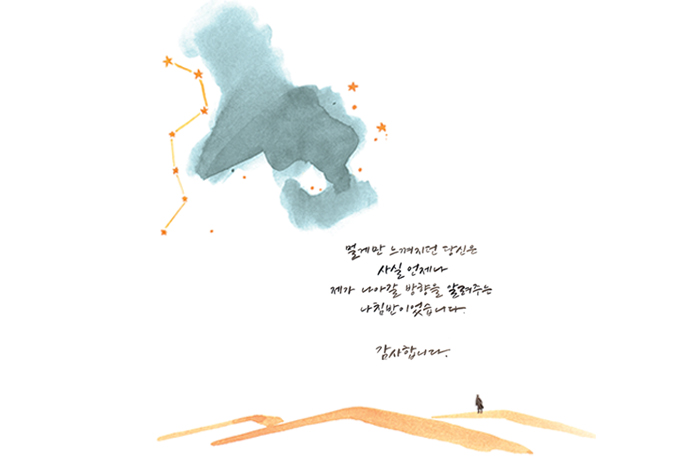 멀게만 느껴지던 당신은
사실 언제나
제가 나아갈 방향을 알려주는
나침반이었습니다.
감사합니다.